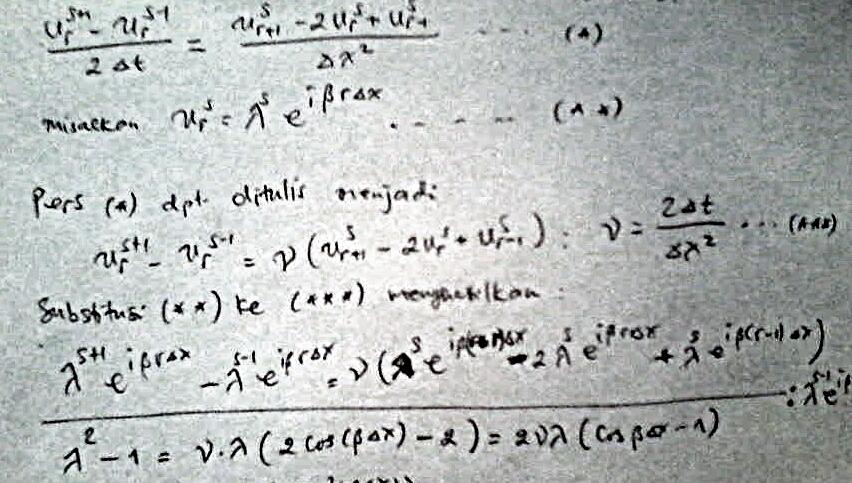 \frac{u_r^{s+1} - u_r^{s-1}}{2 Δt} = \frac{u_{r+1}^s - 2u_r^s + u_{r-1}^s}{Δx^2} .... (*)
misalkan u_r^s = λ^s e^{iβrΔx} . - - - - (**)
Pers (*) dpt. ditulis menjadi
u_r^{s+1} - u_r^{s-1} = ν (u_{r+1}^s - 2u_r^s + u_{r-1}^s) : ν = \frac{2Δt}{Δx^2} ... (***)
Substitusi (**) ke (***) menghasilkan :
λ^{s+1} e^{iβrΔx} - λ^{s-1} e^{iβrΔx} = ν (λ^s e^{iβ(r+1)Δx} - 2λ^s e^{iβrΔx} + λ^s e^{iβ(r-1)Δx})
: λ^{s-1} e^{iβ
λ^2 - 1 = ν.λ (2 cos(βΔx) - 2) = 2νλ (cos βΔx - 1)